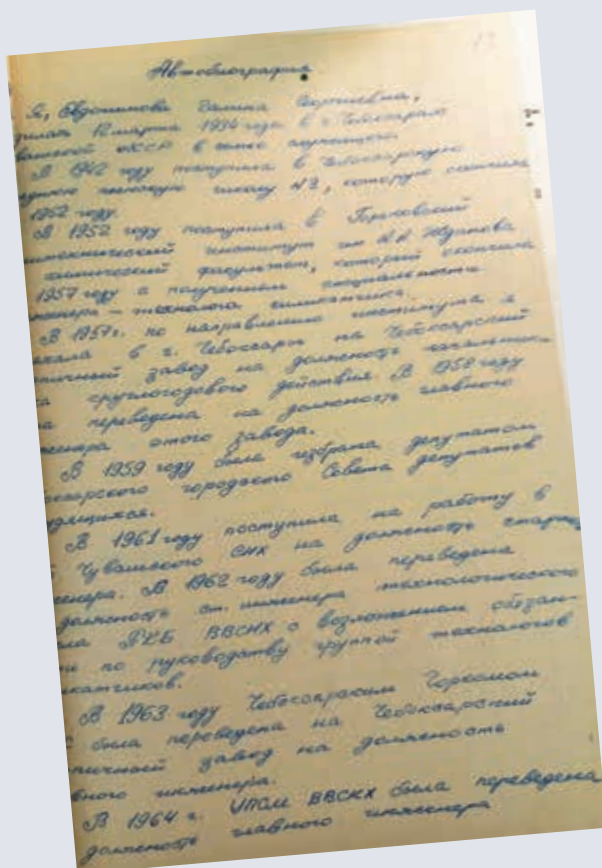 13
Автобиография
Я, Евдокимова Галина Георгиевна,
дилась 12 марта 1934 года в г. Чебоксарах
вашской АССР в семье служащего.
В 1942 году поступила в Чебоксарскую
реднюю женскую школу №2, которую окончила
1952 году.
В 1952 году поступила в Горьковский
итехнический институт им А.А. Жданова
химический факультет, который окончила
1957 году с получением специальности
женера-технолога силикатчика.
В 1957 г. по направлению института я
ехала в г. Чебоксары на Чебоксарский
пичный завод на должность начальни-
ка круглогодового действия. В 1958 году
ла переведена на должность главного
женера этого завода.
В 1959 году была избрана депутатом
оксарского городского Совета депутатов
удящихся.
В 1961 году поступила на работу в
Чувашского СНХ на должность старш
женера. В 1962 году была переведена
должность ст. инженера технологического
ла ПКБ ВВСНХ с возложением обязан-
ти по руководству группой технологов
икатчиков.
В 1963 году Чебоксарским Горкомом
С была переведена на Чебоксарский
пичный завод на должность
вного инженера.
В 1964 г. УПСМ ВВСНХ была переведена
должность главного инженера